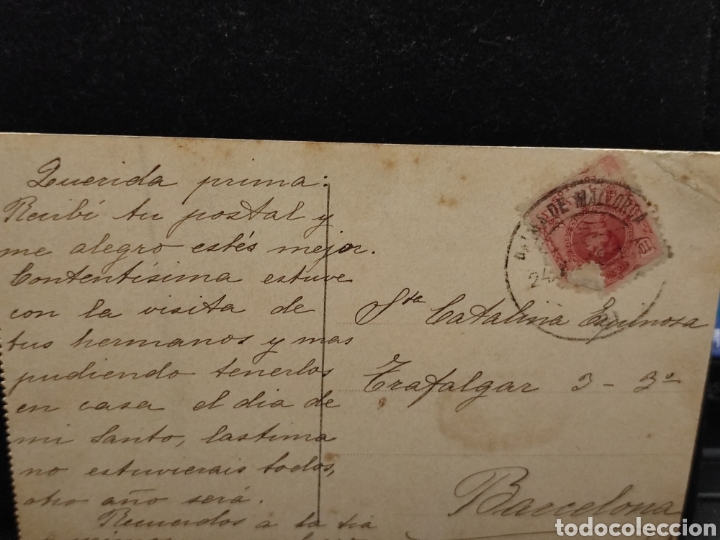 Querida prima:
Recibí tu postal y
me alegro estés mejor.
Contentísima estuve
con la visita de
tus hermanos y mas
pudiendo tenerlos
en casa el dia de
mi Santo, lastima
no estuvierais todos,
otro año será.
Recuerdos a la tia
Sta Catalina Espinosa
Trafalgar 3 - 3º
Barcelona
DE MALLORCA
24
todocoleccion